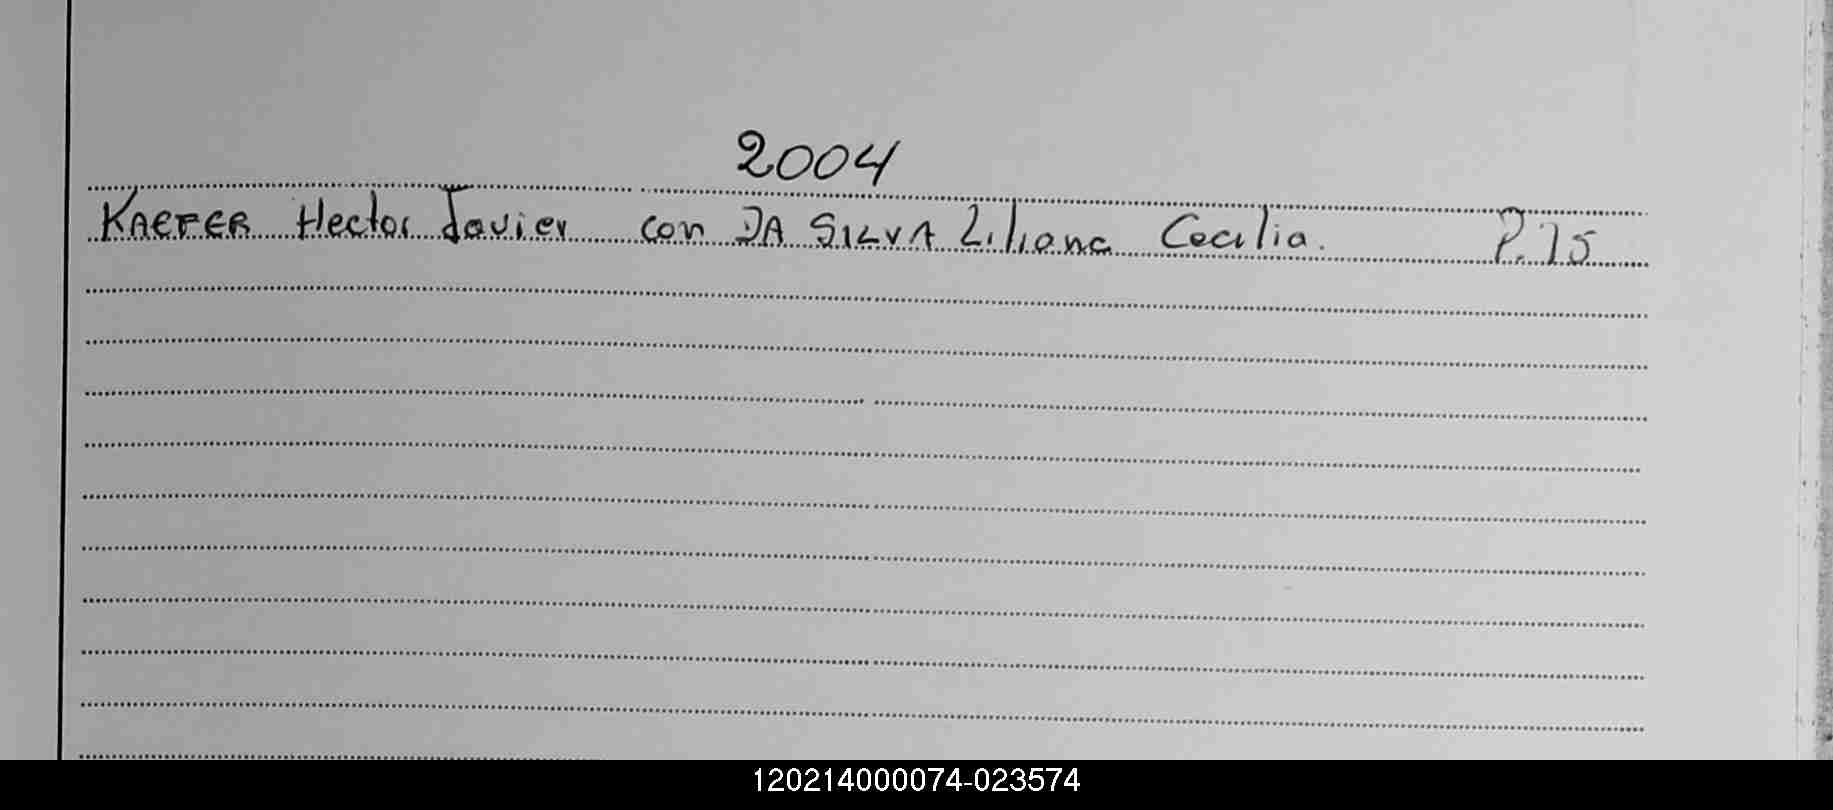 2004
KAEFER Hector Javier con DA SILVA Liliana Cecilia. P. 15
120214000074-023574